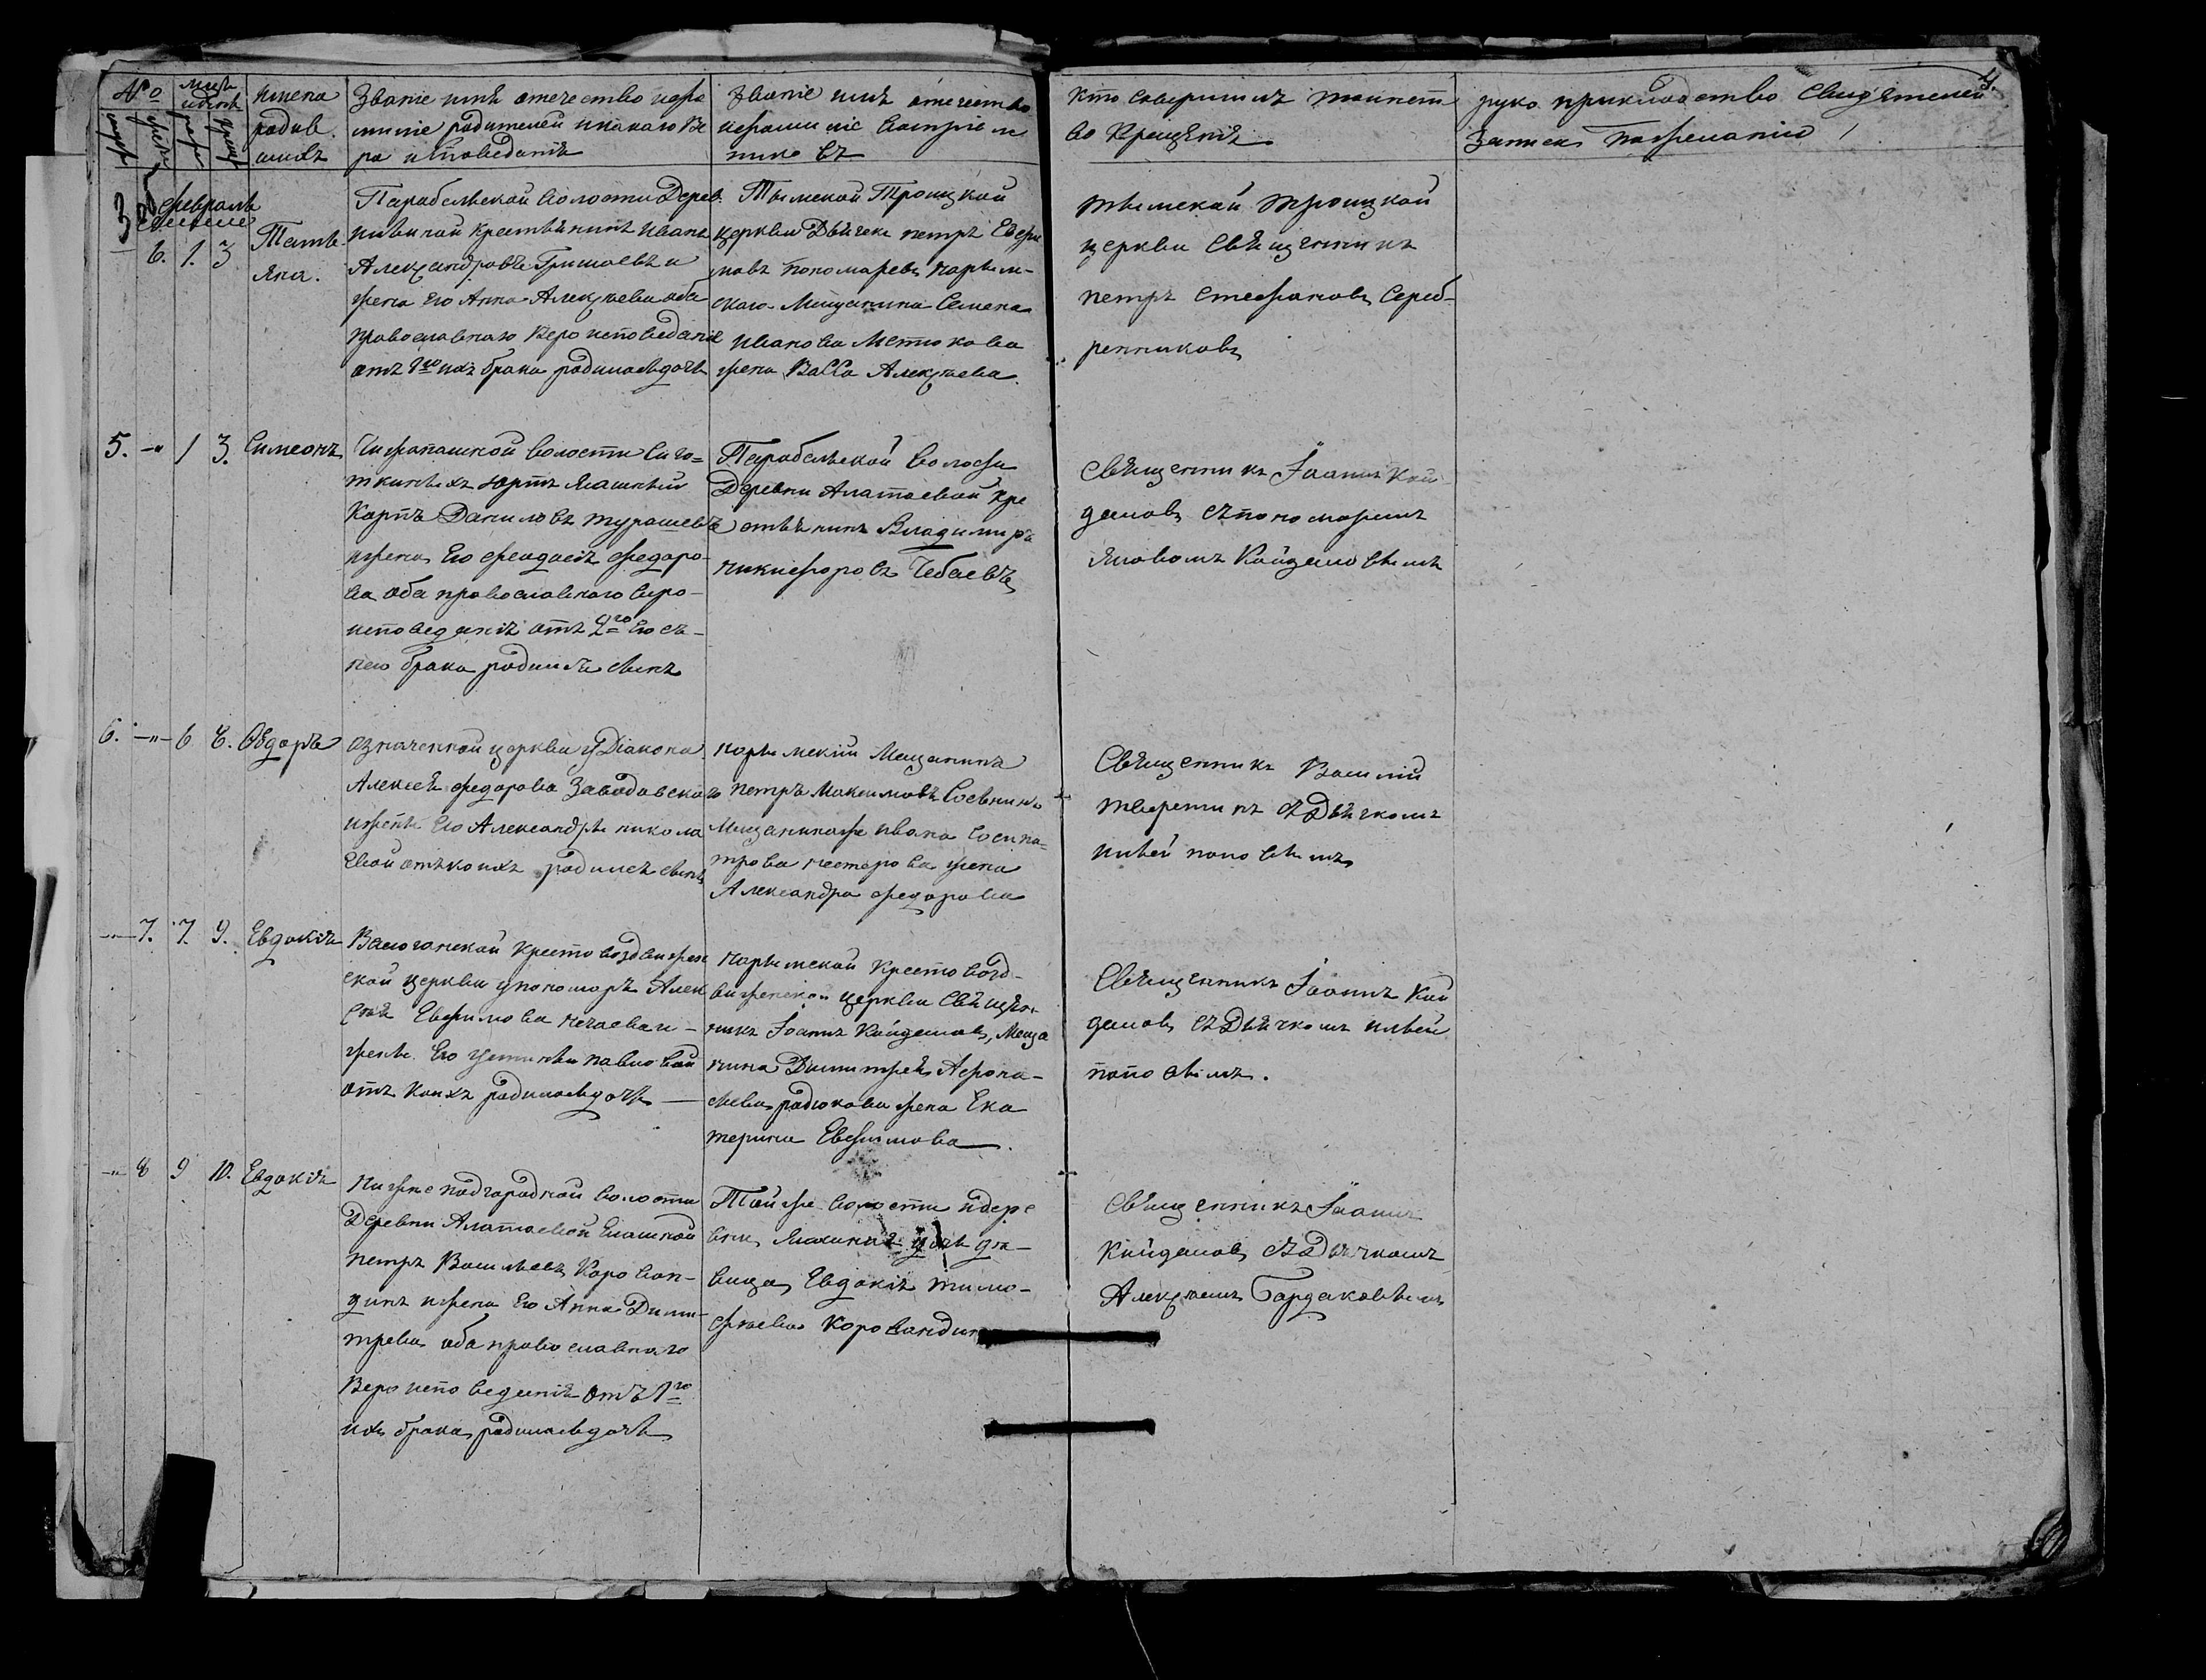 4.
№
муж
женс
мѣс
рожд
крещ
имена
родив.
шихъ
Званіе имя отечество и фа
миліе родителей и какаго ве
ро исповеданія
Званіе имя отечество
и фамиліе воспріем
никовъ
кто совершилъ таинст
во Крещенія
руко прикладство Свидѣтелей
записи по желанію
февраль
6. 1. 3
Татья
яна.
Парабельской волости Дерев.
нивичой крестьянинъ Иванъ
Александровъ Гришаевъ и
жена Его Анна Алексѣева оба
православнаго веро исповеданіе
отъ 1го ихъ брака родилась дочь
Тымской Троицкой
церкви Дьячекъ петръ Ефи
мовъ пономаревъ нарым-
скаго Мещанина Семена
иванова Метюкова
жена Васса Алексѣева.
тымской троицкой
церкви Священникъ
петръ Стефановъ Сереб-
ренниковъ
5. -"- 1 3. Симеонъ
Чижапашкой волости Сиго-
ткиныхъ Юртъ ясашный
Карпъ Даниловъ турашевъ
и жена Его феодосія федоро-
ва оба православнаго веро-
исповеданія отъ 2го Его съ-
нею брака родился сынъ
Парабельской волости
Деревни Алатаевой кре
стьянинъ Владимиръ
никифоровъ Чебаевъ
Священникъ Іоаннъ Кай
даловъ съ пономаремъ
Яковомъ Кайдаловымъ
6. -"- 6 8. Ѳедоръ
означенной церкви у Діакона
Алексея федорова Заводовскаго
и жены Его Александры никола
евой отъ коихъ родился сынъ
нарымскій Мещанинъ
петръ Максимовъ Соснинъ
Мещанина же ивана Сосипа-
трова нестерова жена
Александра федорова
Священникъ Василій
тверетинъ съ Дьячкомъ
ильей поповымъ
-"- 7. 7. 9. Евдокія
Васюганской Крестовоздвижен
ской церкви у пономаря Алек
сѣя Ефимова нечаева и-
жены Его устиньи павловой
отъ коихъ родилась дочь
нарымской Крестовозд-
виженской церкви Священ-
никъ Іоаннъ Кайдаловъ, Меща
нина Димитрея Афона-
сьева родюкова жена Ека
терина Ефимова.
Священникъ Іоаннъ Кай
даловъ съ Дьячкомъ ильей
поповымъ.
-"- 8 9 10. Евдокія
Нижне подгородной волости
Деревни Алатаевой Ясашной
петръ Васильевъ Корован-
динъ и жена Его Анна Дими-
трева оба православнаго
Веро исповеданія отъ 1го
ихъ брака родилась дочь
Той же волости и дере
вни, дѣ-
вица Евдокія тимо-
фѣева Коровандин
Священникъ Іоаннъ
Кайдаловъ съ Дьячкомъ
Алексѣемъ Бардаковымъ